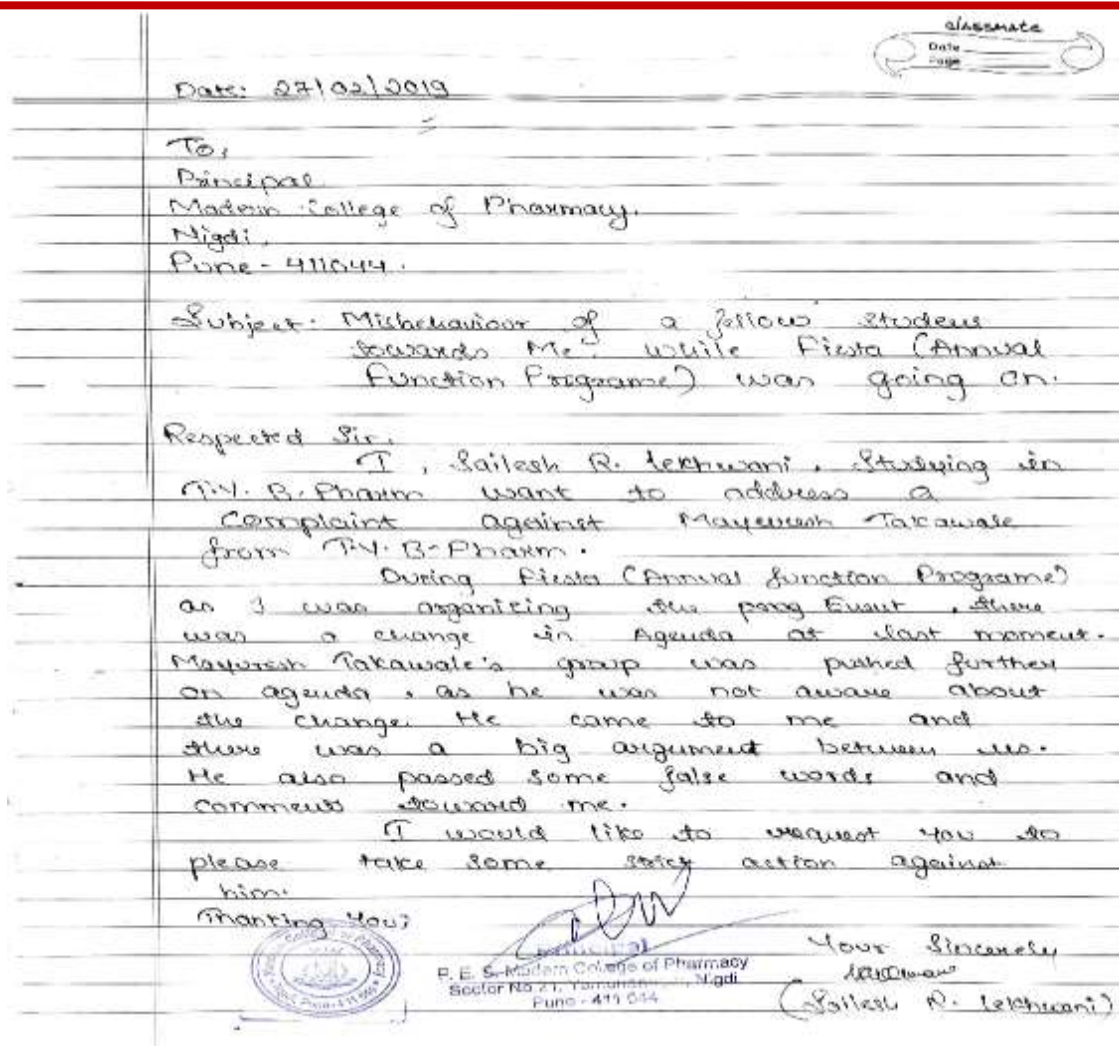 classmate
Date
Page
Date: 27/02/2019
To,
Principal
Modern College of Pharmacy,
Nigdi,
Pune - 411044.
Subject: Misbehaviour of a fellow student
towards Me. while Fiesta (Annual
Function Programe) was going on.
Respected Sir,
I, Sailesh R. Lekhwani, Studying in
T.Y. B. Pharm want to address a
Complaint against Mayuresh Takawale
from T.Y. B-Pharm.
During Fiesta (Annual function Programe)
as I was organizing the Event, there
was a change in Agenda at last moment.
Mayuresh Takawale's group was pushed further
on agenda, as he was not aware about
the change. He came to me and
there was a big argument between us.
He also passed some false words and
comments toward me.
I would like to request you to
please take some strict action against
him.
Thanking You;
Principal
P. E. S. Modern College of Pharmacy
Sector No 21, Nigdi
Pune - 411 044
Your Sincerely
(Sailesh R. Lekhwani)